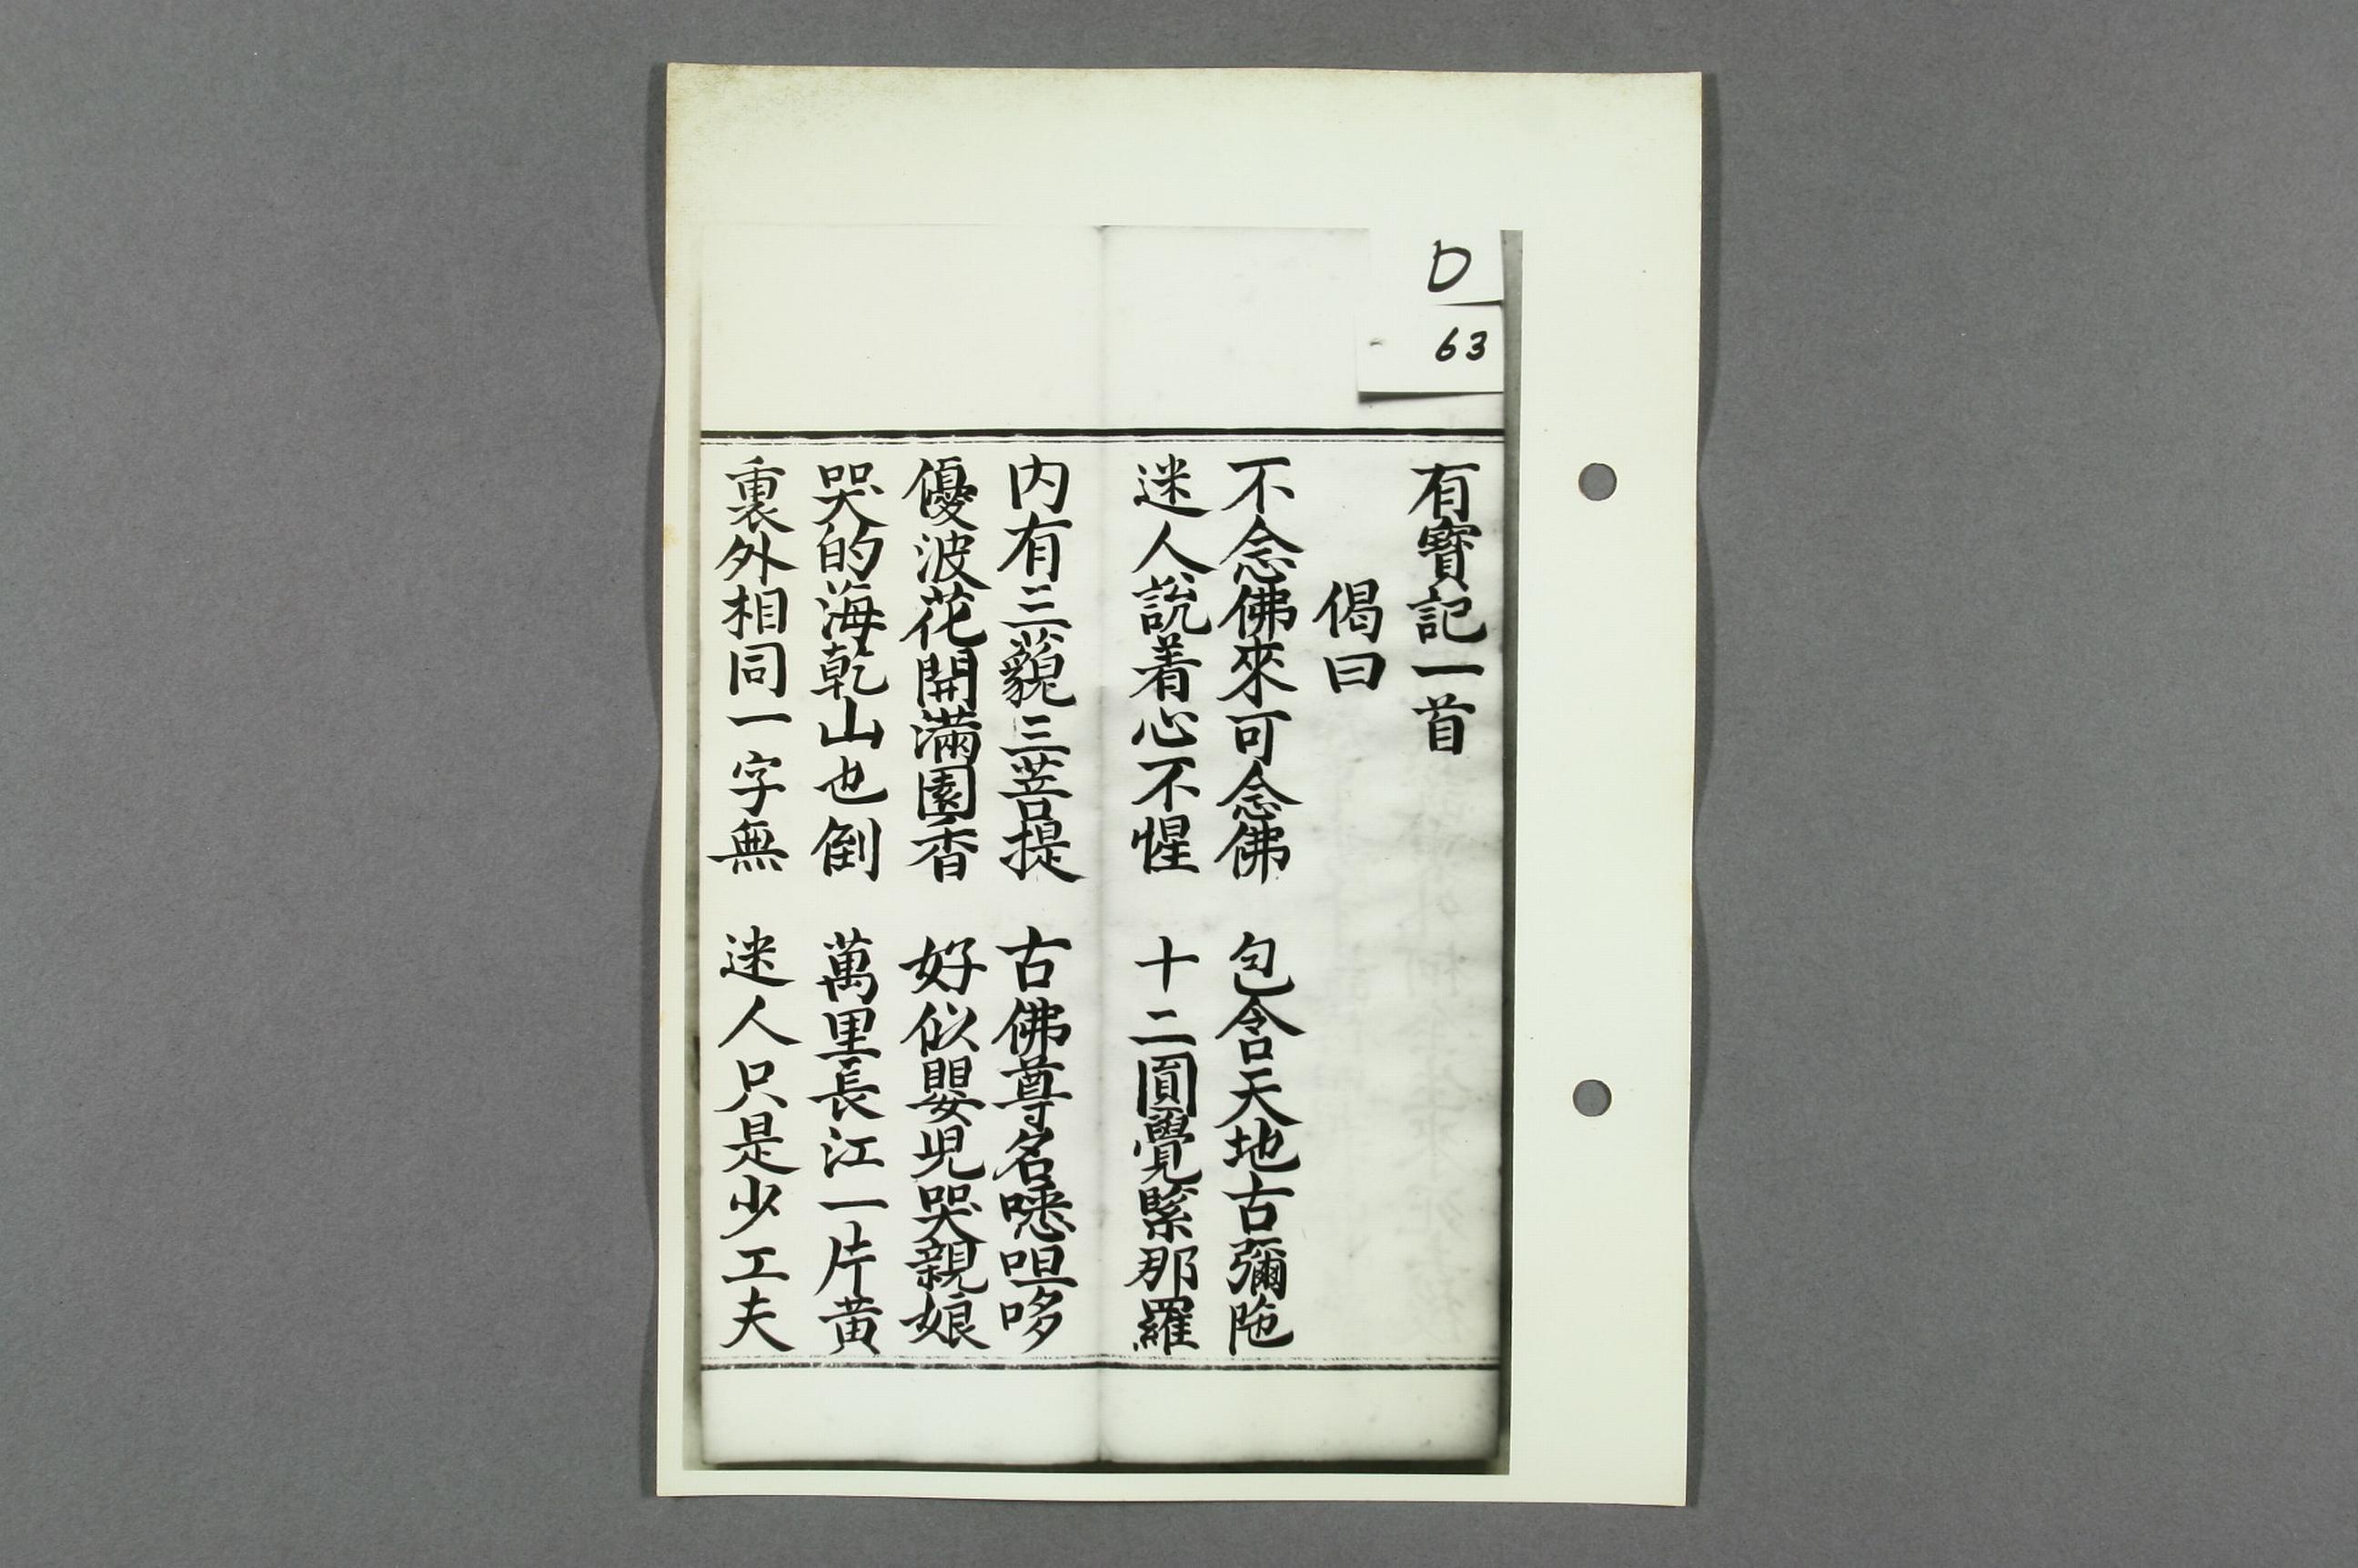 D
63
有寳記一首
偈曰
不念佛來可念佛 包含天地古彌陁
迷人説着心不惺 十二圎覺緊那羅
内有三藐三菩提 古佛尊名㗭呾哆
優波花開滿園香 好似嬰児哭親娘
哭的海乾山也倒 萬里長江一片黄
裏外相同一字無 迷人只是少工夫